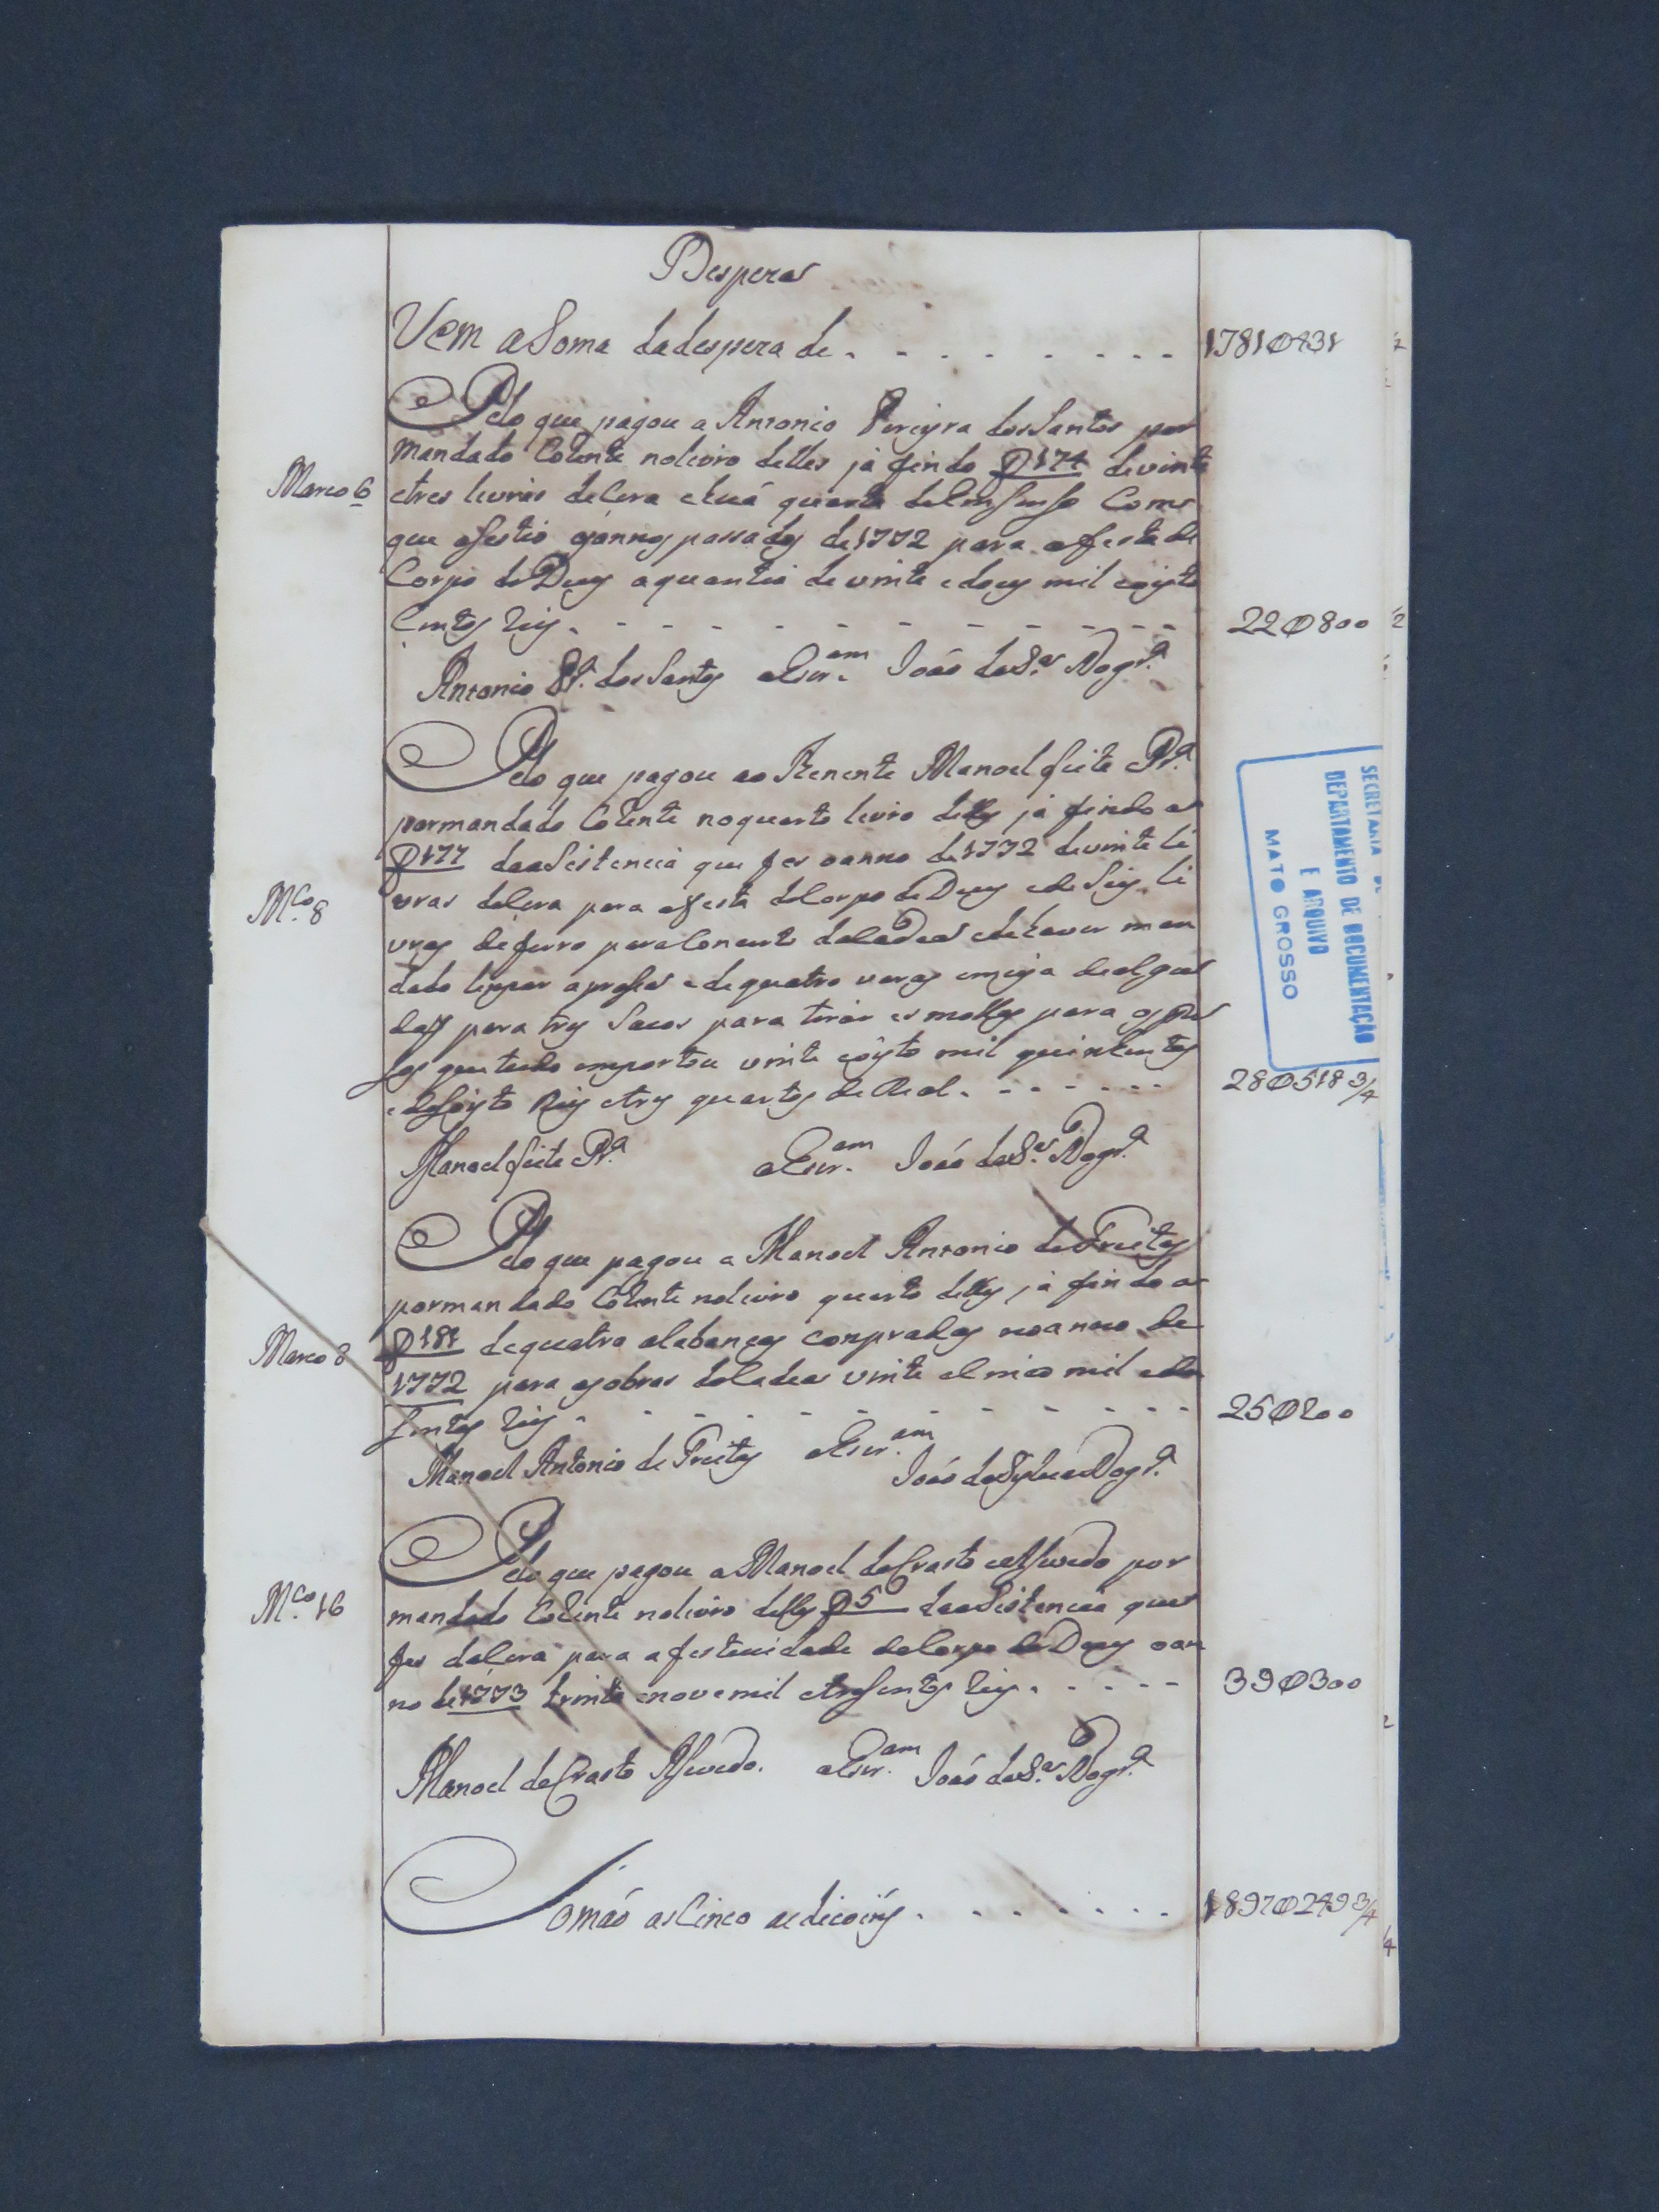 Despeza
Vem a Soma dadespeza de . - - - - - - - 1781Ø431
Pelo que pagou a Antonio Pereyra dos Santos por
mandado Corente nolivro delles já findo f 174 devinte
Março 6 etres livras deCera ehuã quarta deEnSenSo Com
que aSestio oanno passado de 1772 para afesta de
Corpo de Deos aquantia de vinte edous mil eoyto
Centos reis . - - - - - - - - - - 22Ø800
Antonio Pra. dos Santos aEscr.am João daSa. Nogra.
Pelo que pagou ao Tenente Manoel Leite Pra.
pormandado Corente noquarto livro delles já findo a
f 177 daaSistencia que fes oanno de 1772 devinte li
Mço. 8 vras deCera para afesta deCorpo de Deos edeSeis li
vras deferro paraConcerto daCadea edehaver man
dado limpar a edequatro varas emeya dealgo
daõ para tres Sacos para tirar esmollas para os pre
sos quetudo emportou vinte eoyto mil quinhentos
edeSoyto Reis etres quartos de Real . - - - - - - 28Ø518 3/4
Manoel Leite Pra. aEscr.am João daSa. Nogra.
Pelo que pagou a Manoel Antonio de Freitas
pormandado Corente nolivro quarto delles já findo a
Março 8 f 181 dequatro alabancas conpradas noanno de
1772 para asobras daCadea vinte eSinco mil edu
Sentos reis . - - - - - - - - - - 25Ø200
Manoel Antonio de Freitas aEscr.am
João daSylva Nogra.
Pelo que pagou aManoel deCrasto eaSevedo por
Mço. 16 mandado Corente nolivro delles f 5 daaSistencia que
fes deCera para a festevidade deCorpo de Deos oan
no de 1773 trinta enovemil etreSentos reis . - - - - 39Ø300
Manoel deCrasto ASevedo. aEscr.am João daSa. Nogra.
Somaõ asCinco adicoins . - - - - - - 1897Ø249 3/4
SECRETARIA DE
DEPARTAMENTO DE DOCUMENTAÇÃO
E ARQUIVO
MATO GROSSO